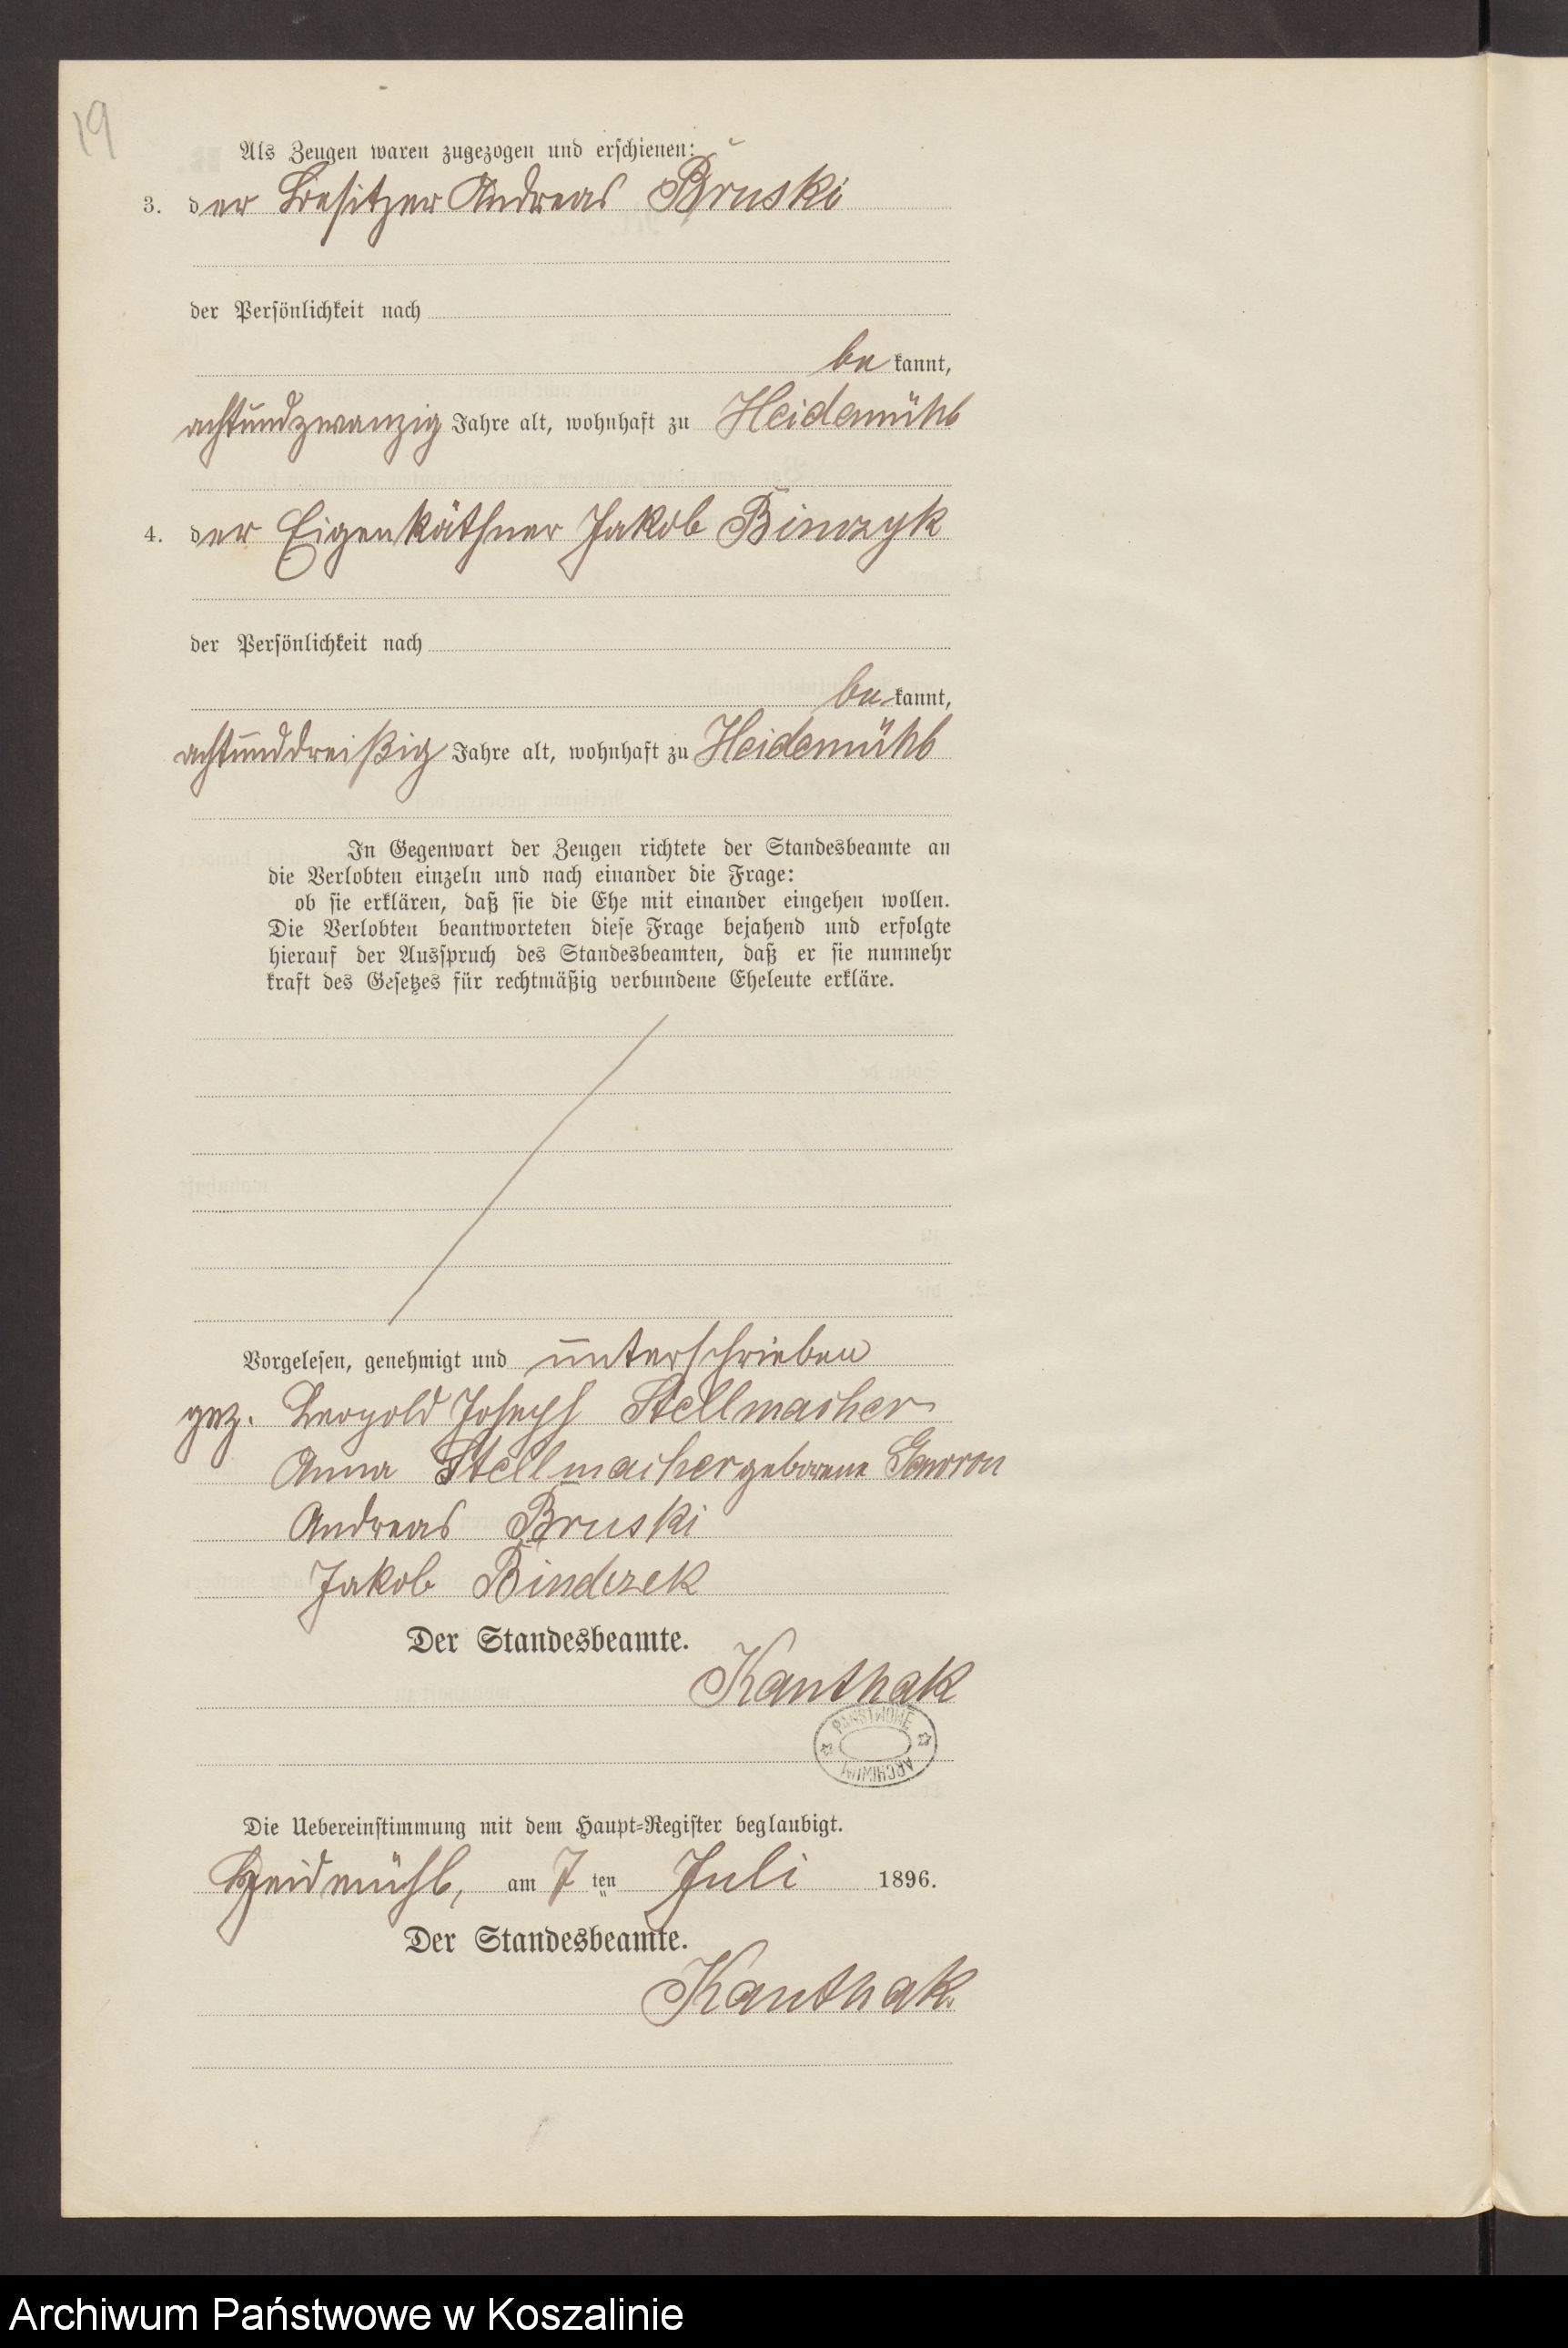 19
Als Zeugen waren zugezogen und erschienen:
3. der Besitzer Andreas Bruski
der Persönlichkeit nach
be kannt,
achtundzwanzig Jahre alt, wohnhaft zu Heidemühl
4. der Eigenkäthner Jakob Binczyk
der Persönlichkeit nach
be kannt,
achtunddreißig Jahre alt, wohnhaft zu Heidemühl
In Gegenwart der Zeugen richtete der Standesbeamte an
die Verlobten einzeln und nach einander die Frage:
ob sie erklären, daß sie die Ehe mit einander eingehen wollen.
Die Verlobten beantworteten diese Frage bejahend und erfolgte
hierauf der Ausspruch des Standesbeamten, daß er sie nunmehr
kraft des Gesetzes für rechtmäßig verbundene Eheleute erkläre.
Vorgelesen, genehmigt und unterschrieben
gez. Leopold Joseph Stellmacher
Anna Stellmacher geborene Gawron
Andreas Bruski
Jakob Bindczek
Der Standesbeamte.
Kanthak
PAŃSTWOWE
ARCHIWUM
Die Uebereinstimmung mit dem Haupt-Register beglaubigt.
Heidmühl, am 7 ten Juli 1896.
Der Standesbeamte.
Kanthak.
Archiwum Państwowe w Koszalinie